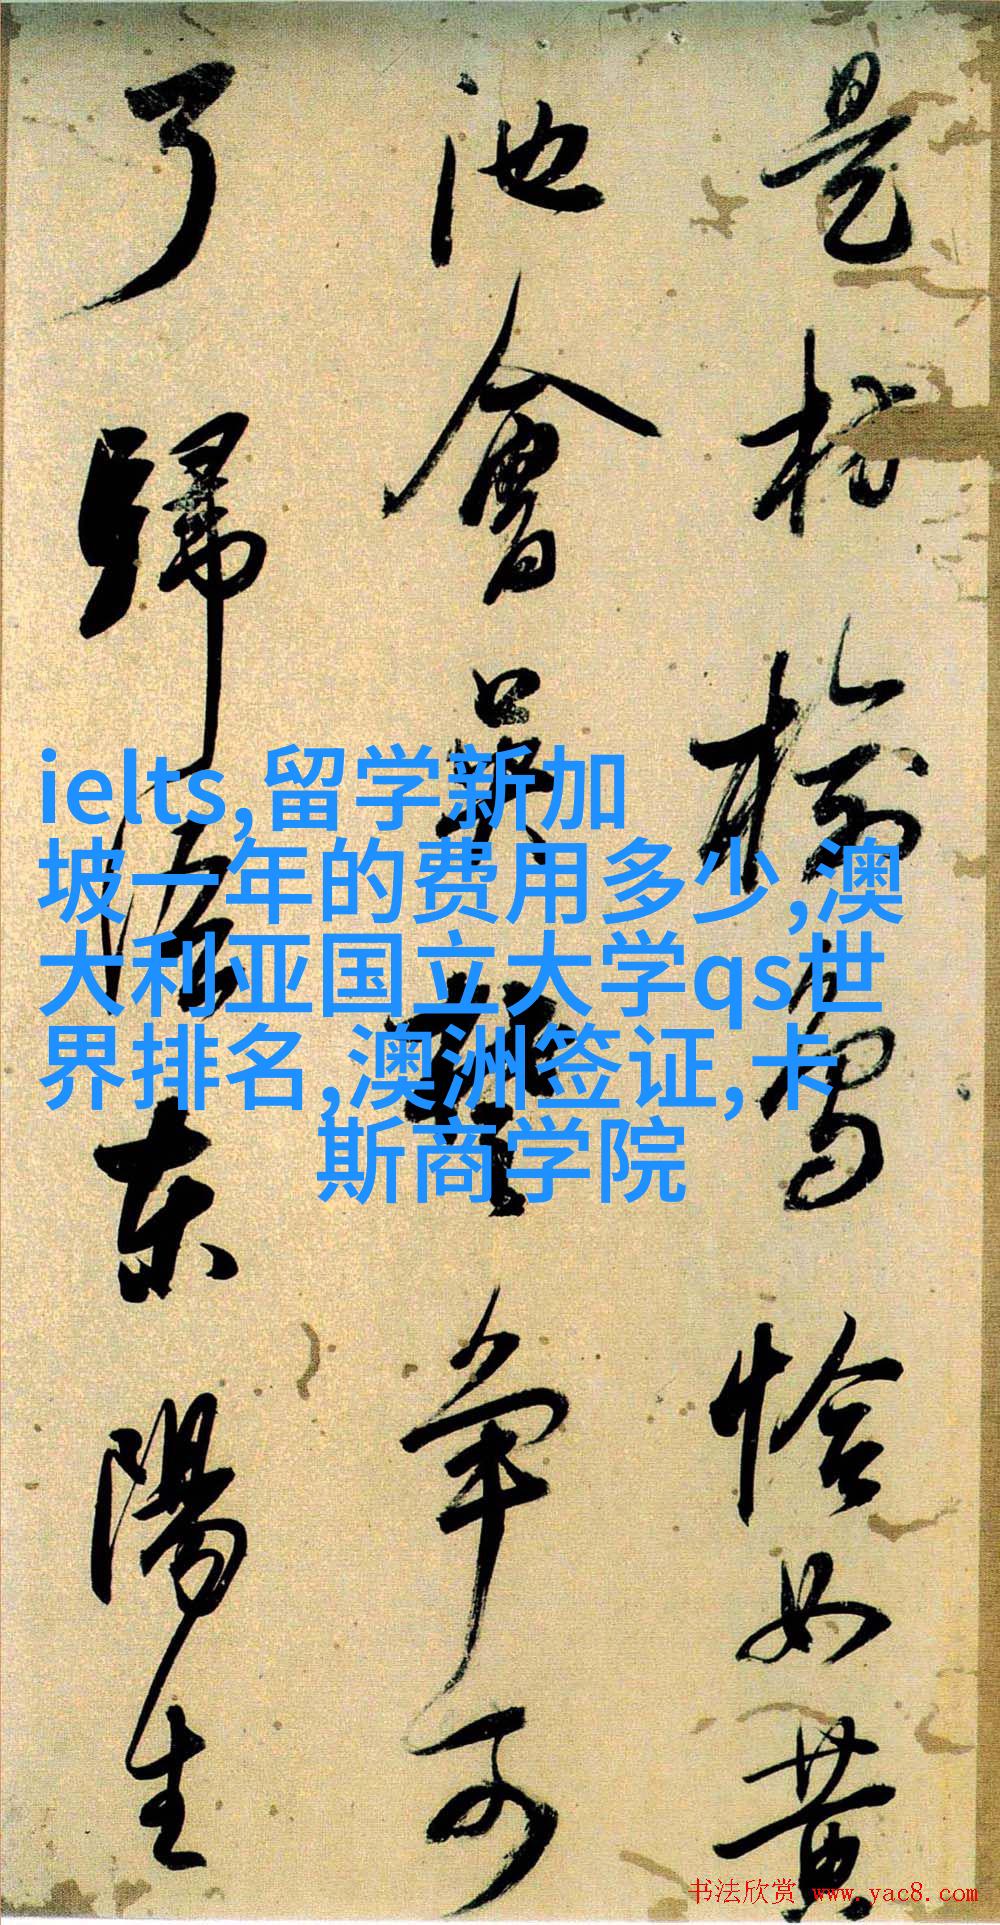 是枋榆恰如黄
池會吳爭可
了歸東陽生
ielts,留学新加
坡一年的费用多少,澳
大利亚国立大学qs世
界排名,澳洲签证,卡
斯商学院
书法欣赏 www.yac8.com